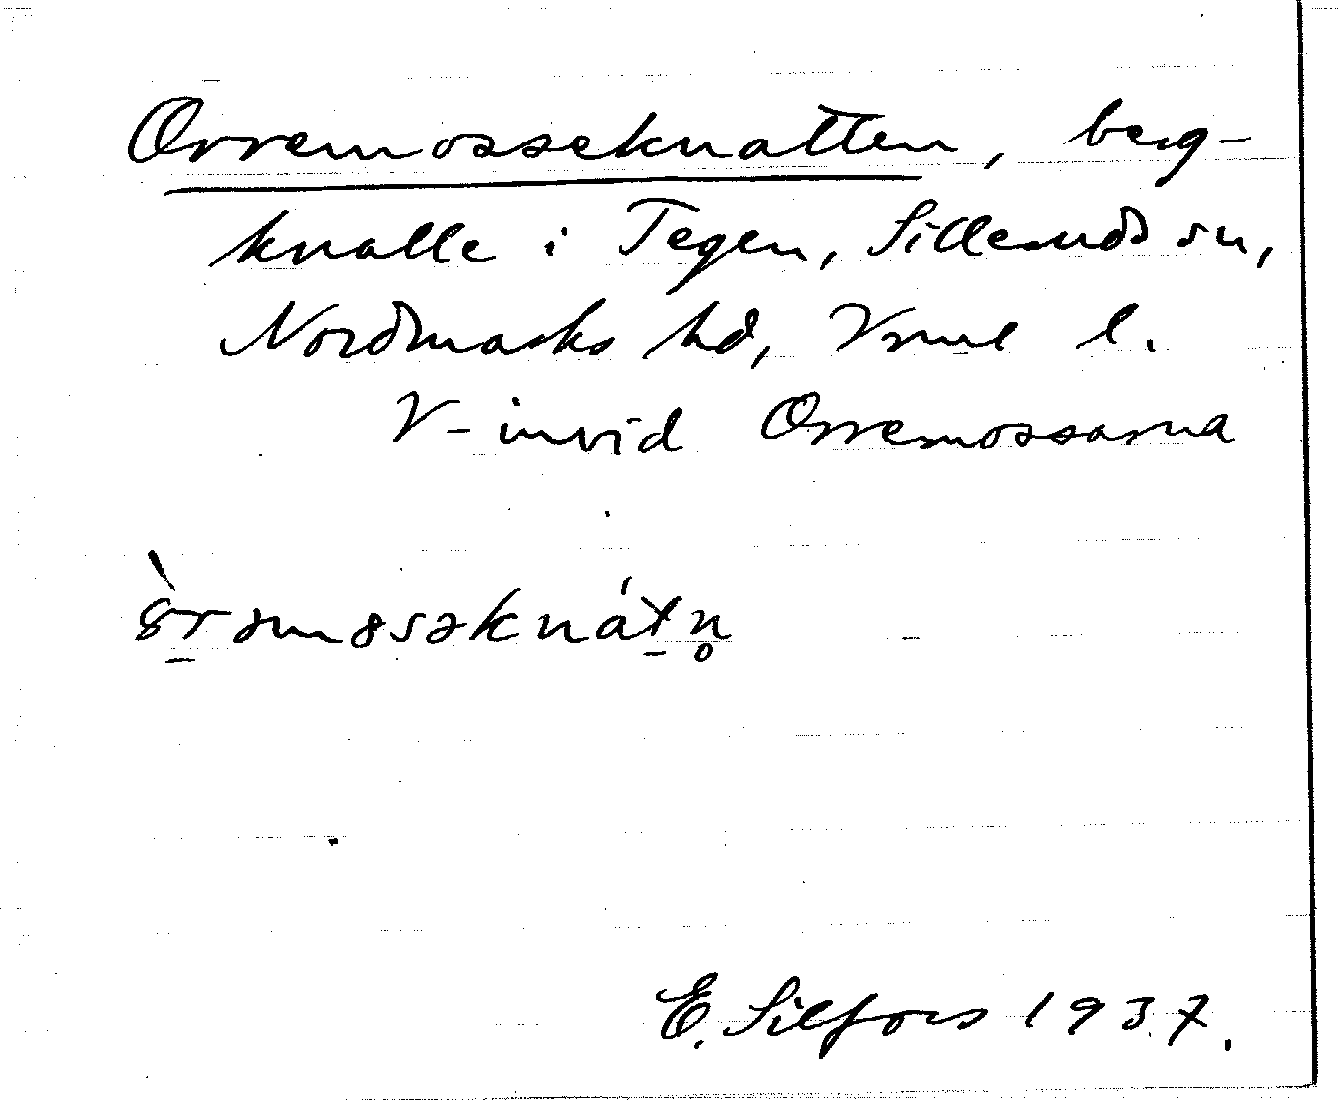 Orremosseknatten, berg-
knalle i Tegen, Sillerud sn,
Nordmarks hd, Vrml l.
V-invid Orremossarna
ö̀r̲əmɵsəknát̲n̥
E. Silfors 1937.